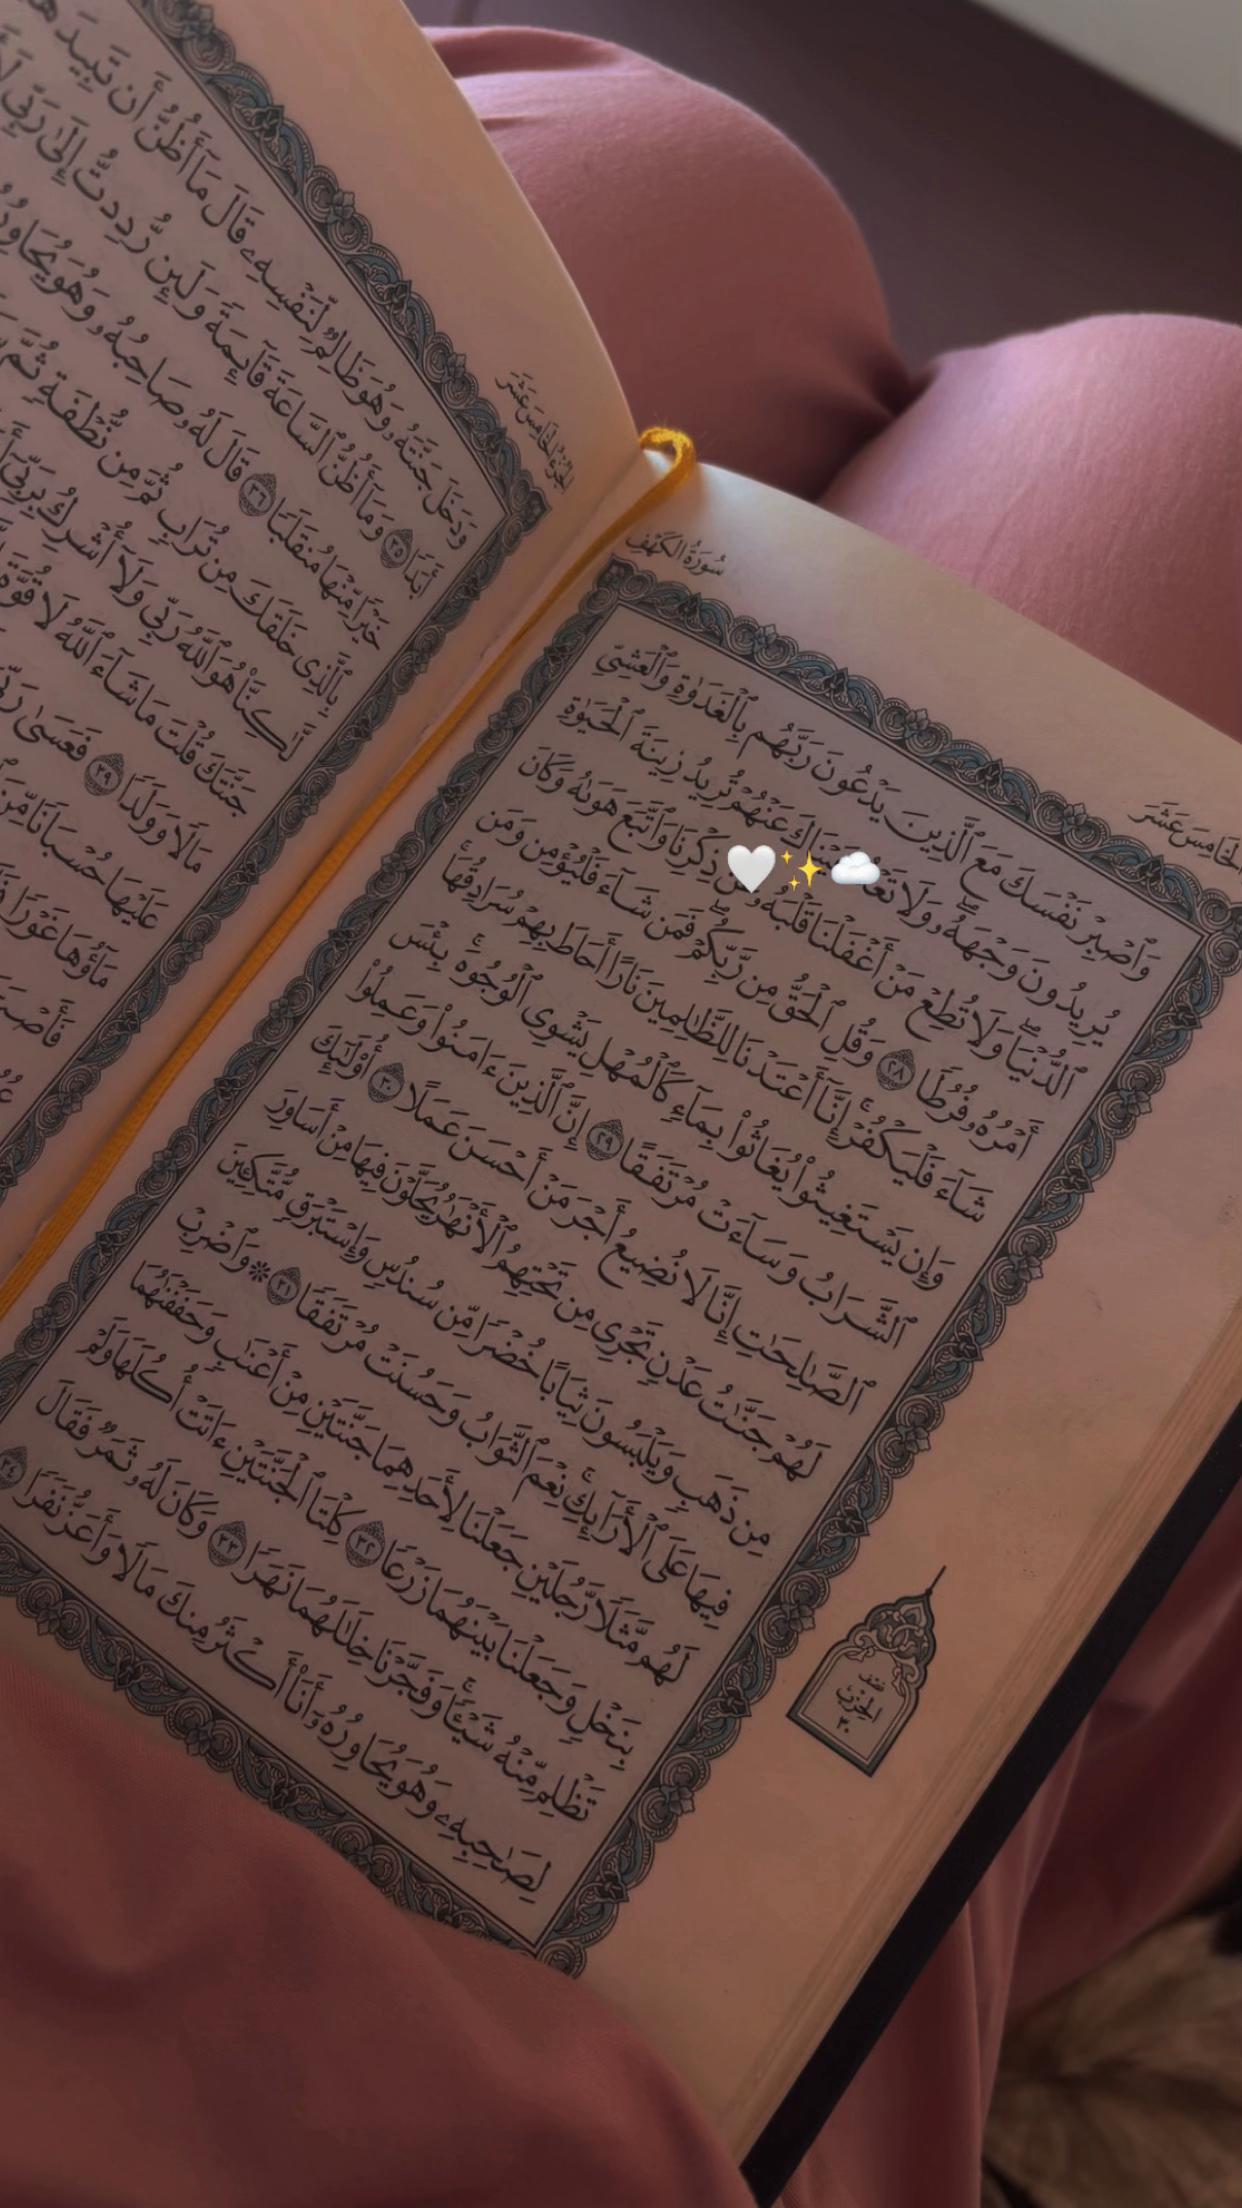 الخَامِسَ عَشَرَ
سُورَةُ الكَهۡفِ
وَٱصۡبِرۡ نَفۡسَكَ مَعَ ٱلَّذِينَ يَدۡعُونَ رَبَّهُم بِٱلۡغَدَوٰةِ وَٱلۡعَشِيِّ
يُرِيدُونَ وَجۡهَهُۥۖ وَلَا عَنۡهُمۡ تُرِيدُ زِينَةَ ٱلۡحَيَوٰةِ
ٱلدُّنۡيَاۖ وَلَا تُطِعۡ مَنۡ أَغۡفَلۡنَا قَلۡبَهُۥ عَن ذِكۡرِنَا وَٱتَّبَعَ هَوَىٰهُ وَكَانَ
أَمۡرُهُۥ فُرُطٗا ٢٨ وَقُلِ ٱلۡحَقُّ مِن رَّبِّكُمۡۖ فَمَن شَآءَ فَلۡيُؤۡمِن وَمَن
شَآءَ فَلۡيَكۡفُرۡۚ إِنَّآ أَعۡتَدۡنَا لِلظَّٰلِمِينَ نَارًا أَحَاطَ بِهِمۡ سُرَادِقُهَاۚ
وَإِن يَسۡتَغِيثُواْ يُغَاثُواْ بِمَآءٖ كَٱلۡمُهۡلِ يَشۡوِي ٱلۡوُجُوهَۚ بِئۡسَ
ٱلشَّرَابُ وَسَآءَتۡ مُرۡتَفَقًا ٢٩ إِنَّ ٱلَّذِينَ ءَامَنُواْ وَعَمِلُواْ
ٱلصَّٰلِحَٰتِ إِنَّا لَا نُضِيعُ أَجۡرَ مَنۡ أَحۡسَنَ عَمَلًا ٣٠ أُوْلَٰٓئِكَ
لَهُمۡ جَنَّٰتُ عَدۡنٖ تَجۡرِي مِن تَحۡتِهِمُ ٱلۡأَنۡهَٰرُ يُحَلَّوۡنَ فِيهَا مِنۡ أَسَاوِرَ
مِن ذَهَبٖ وَيَلۡبَسُونَ ثِيَابًا خُضۡرٗا مِّن سُندُسٖ وَإِسۡتَبۡرَقٖ مُّتَّكِـِٔينَ
فِيهَا عَلَى ٱلۡأَرَآئِكِۚ نِعۡمَ ٱلثَّوَابُ وَحَسُنَتۡ مُرۡتَفَقٗا ٣١ ۞ وَٱضۡرِبۡ
لَهُم مَّثَلٗا رَّجُلَيۡنِ جَعَلۡنَا لِأَحَدِهِمَا جَنَّتَيۡنِ مِنۡ أَعۡنَٰبٖ وَحَفَفۡنَٰهُمَا
بِنَخۡلٖ وَجَعَلۡنَا بَيۡنَهُمَا زَرۡعٗا ٣٢ كِلۡتَا ٱلۡجَنَّتَيۡنِ ءَاتَتۡ أُكُلَهَا وَلَمۡ
تَظۡلِم مِّنۡهُ شَيۡـٔٗاۚ وَفَجَّرۡنَا خِلَٰلَهُمَا نَهَرٗا ٣٣ وَكَانَ لَهُۥ ثَمَرٞ فَقَالَ
لِصَٰحِبِهِۦ وَهُوَ يُحَاوِرُهُۥٓ أَنَا۠ أَكۡثَرُ مِنكَ مَالٗا وَأَعَزُّ نَفَرٗا ٣٤
نصف
الحزب
٣٠
الجُزْءُ الخَامِسَ عَشَرَ
وَدَخَلَ جَنَّتَهُۥ وَهُوَ ظَالِمٞ لِّنَفۡسِهِۦ قَالَ مَآ أَظُنُّ أَن تَبِيدَ
أَبَدٗا ٣٥ وَمَآ أَظُنُّ ٱلسَّاعَةَ قَآئِمَةٗ وَلَئِن رُّدِدتُّ إِلَىٰ رَبِّي
خَيۡرٗا مِّنۡهَا مُنقَلَبٗا ٣٦ قَالَ لَهُۥ صَاحِبُهُۥ وَهُوَ يُحَاوِرُهُۥٓ
بِٱلَّذِي خَلَقَكَ مِن تُرَابٖ ثُمَّ مِن نُّطۡفَةٖ ثُمَّ
لَّٰكِنَّا۠ هُوَ ٱللَّهُ رَبِّي وَلَآ أُشۡرِكُ بِرَبِّيٓ
جَنَّتَكَ قُلۡتَ مَا شَآءَ ٱللَّهُ لَا قُوَّةَ
مَالٗا وَوَلَدٗا ٣٩ فَعَسَىٰ رَبِّيٓ
عَلَيۡهَا حُسۡبَانٗا مِّنَ
مَآؤُهَا غَوۡرٗا
فَأَصۡبَحَ